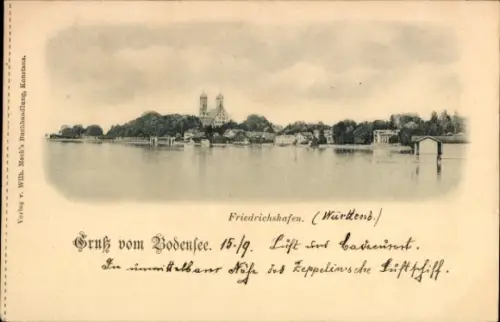 Verlag v. Wilh. Meck's Buchhandlung, Konstanz.
Friedrichshafen. (Württenb.)
Gruß vom Bodensee. 15./9. Luft und Badeourort.
In unmittelbarer Nähe das Zeppelin'sche Luftschiff.